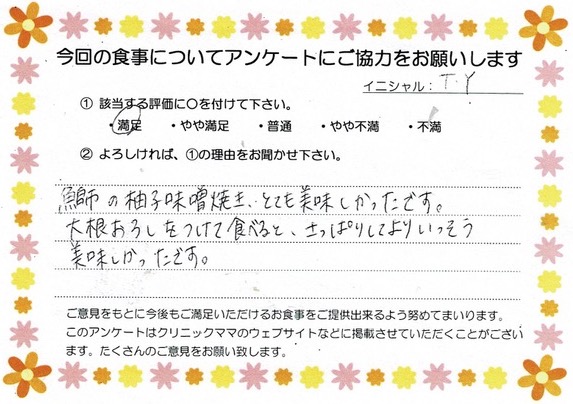 今回の食事についてアンケートにご協力をお願いします
イニシャル：T.Y
① 該当する評価に○を付けて下さい。
・満足 ・やや満足 ・普通 ・やや不満 ・不満
② よろしければ、①の理由をお聞かせ下さい。
鰤の柚子味噌焼き、とても美味しかったです。
大根おろしをつけて食べると、さっぱりしてよりいっそう
美味しかったです。
ご意見をもとに今後もご満足いただけるお食事をご提供出来るよう努めてまいります。
このアンケートはクリニックママのウェブサイトなどに掲載させていただくことがござい
ます。たくさんのご意見をお願い致します。